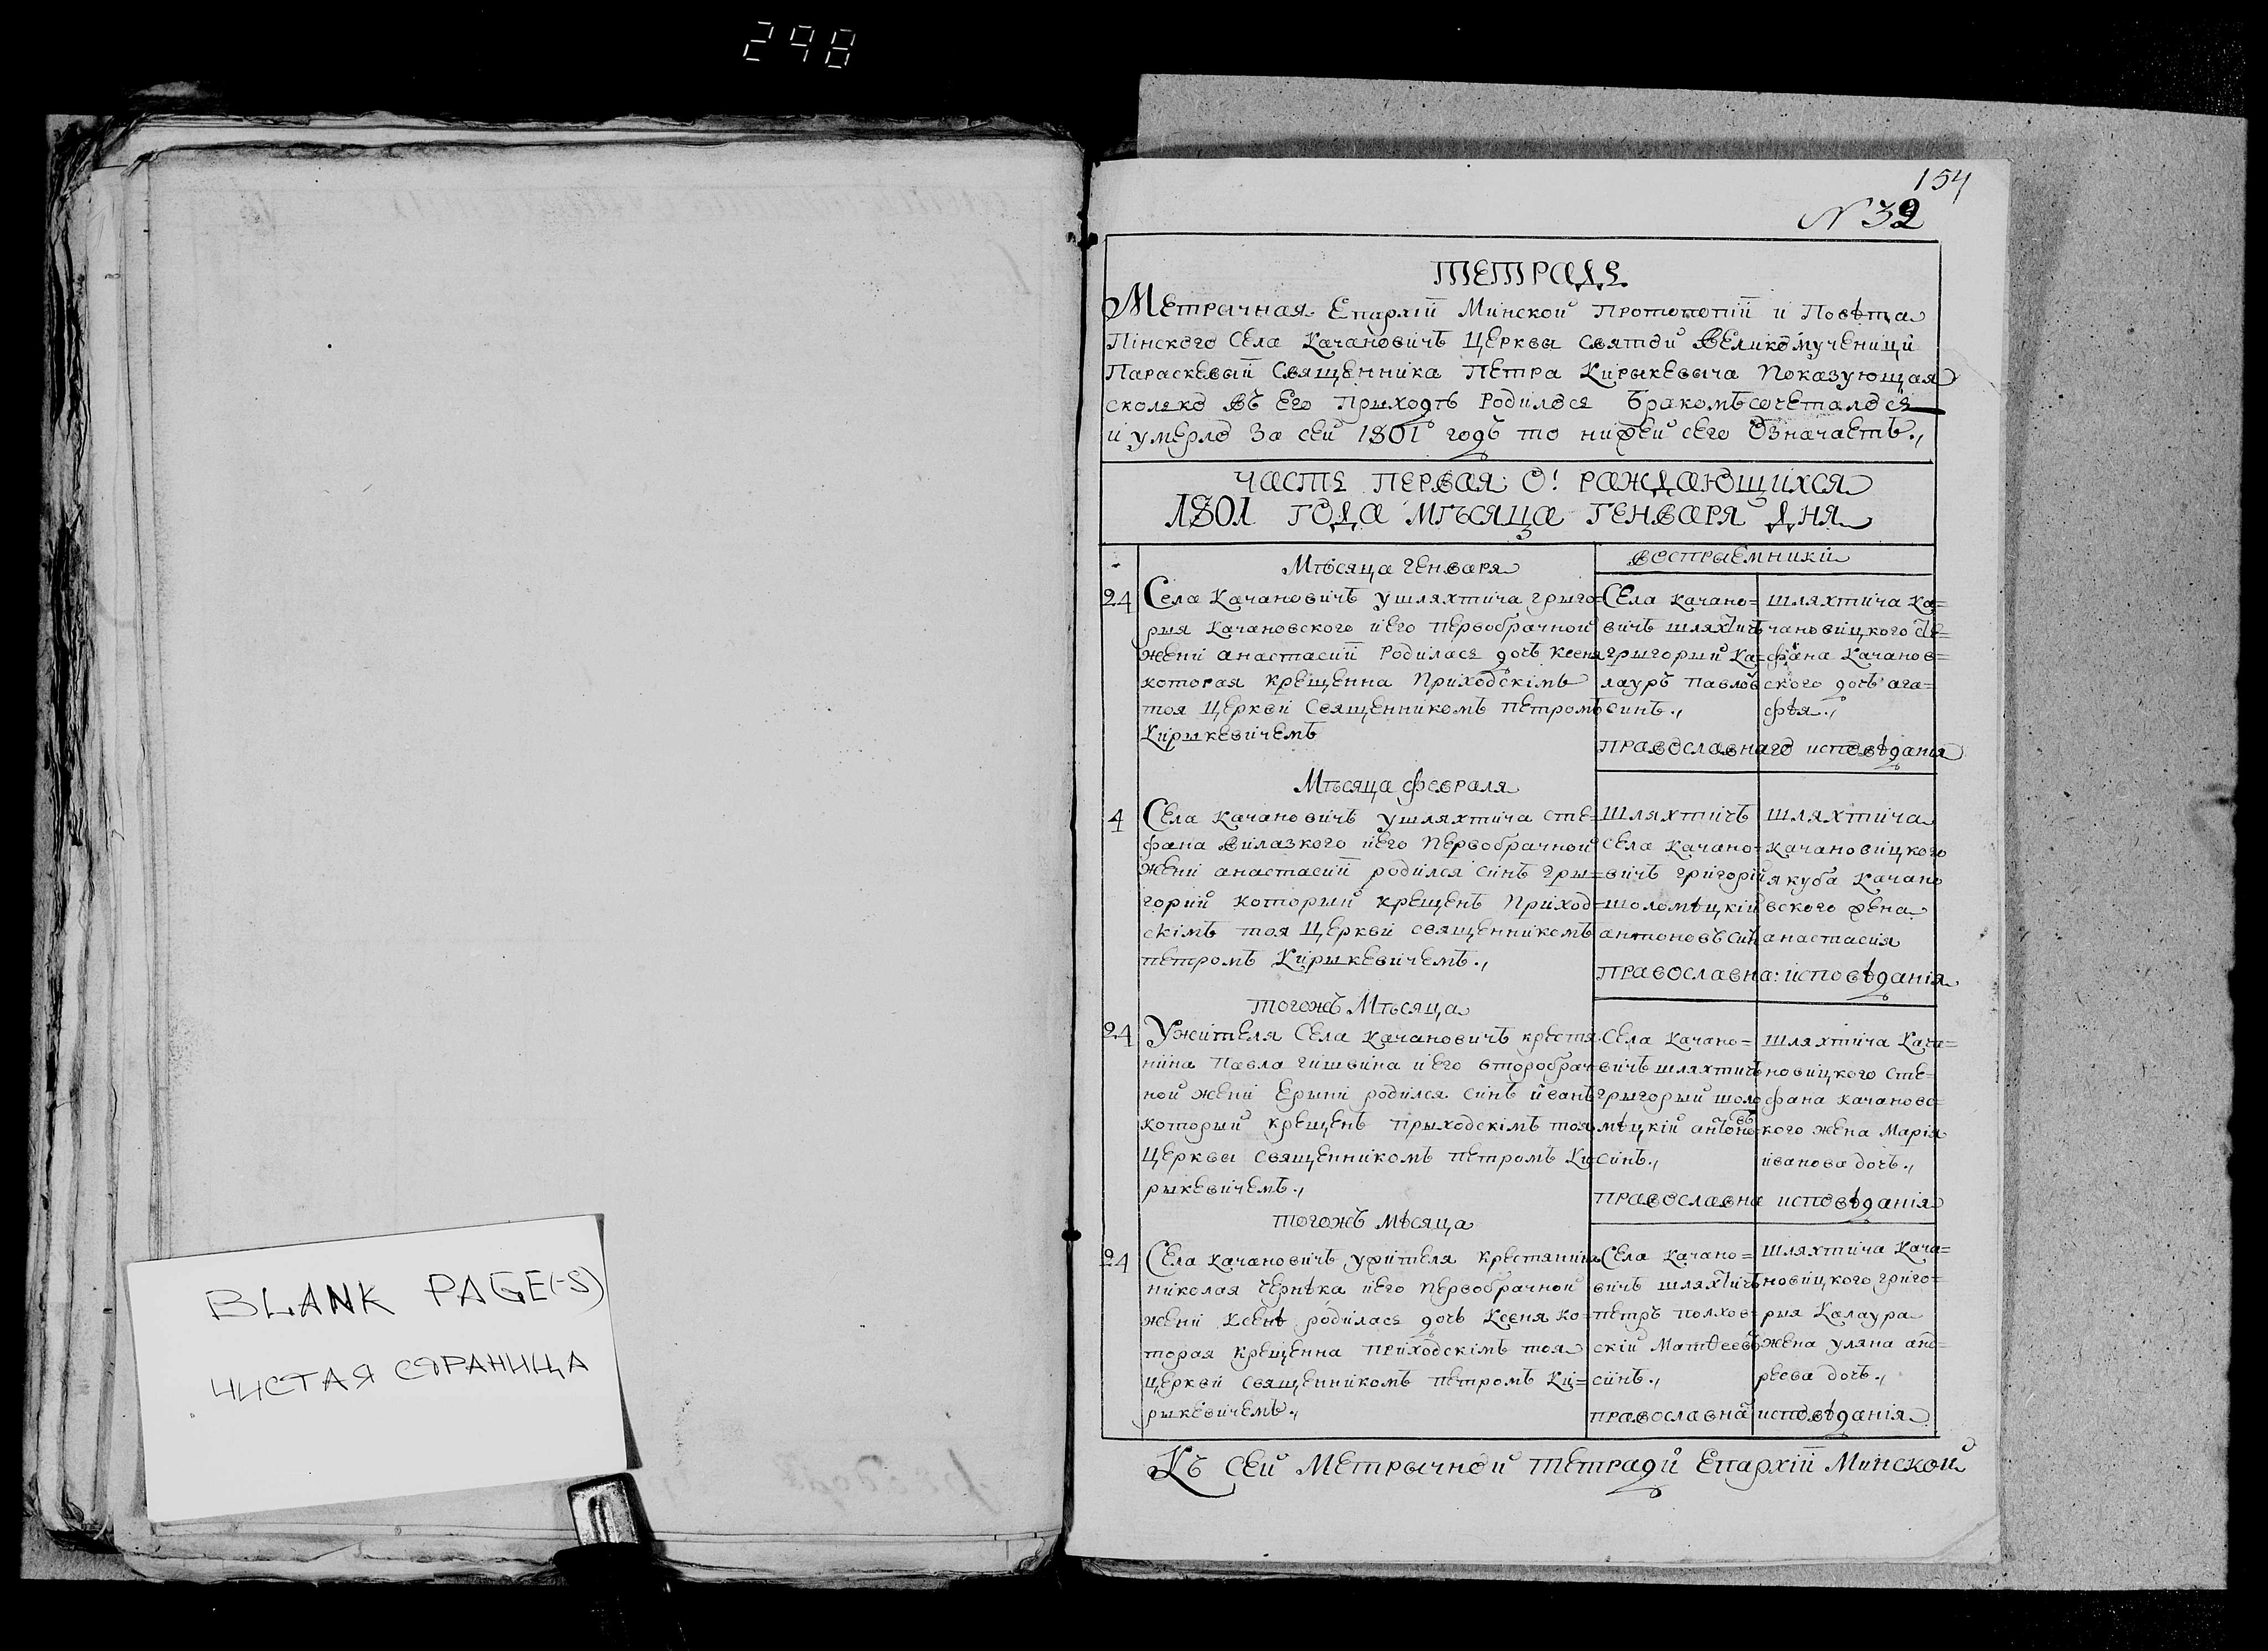 298
154
N 32
ТЕТРАДЬ
Метрычная Епархіи Минской Протопопіи и Повѣта
Пінского Села Качановичъ Церквы Святои Великомученици
Параскевыи Священника Петра Кирыкевыча Показующая
сколько въ Его Прыходѣ Родилося Бракомъ сочеталося
и умерло За сей 1801 годъ то нижей сего Означаетъ.,
ЧАСТЬ ПЕРВАЯ О! РАЖДАЮЩИХСЯ
1801 ГОДА МѢСЯЦА ГЕНВАРЯ ДНЯ
Мѣсяца Генваря
воспрыемники
24 Села Качановичъ у шляхтича грыго=
рыя Качановского и Его Первобрачной
жени анастасии Родилась дочь Ксеня
которая крещенна Приходскімъ
тоя Церкви Священникомъ Петромъ
Кирыкевичемъ
Села Качано=
вичъ шляхтичъ
грыгорый Ка=
лауръ Павловъ
синъ.,
шляхтича Ка=
чановицкого Сте=
фана Качанов=
ского дочь ага=
фѣя.,
Православнаго исповѣданія
Мѣсяца февраля
4 Села Качановичъ у шляхтича сте=
фана Вилазкого и Его Первобрачной
жени анастасии родился синъ гры=
горий который крещенъ Приход=
скімъ тоя Церкви священникомъ
петромъ Кирыкевичемъ.,
Шляхтичъ
села Качано=
вичъ григорій
шоломѣцкій
антоновъ синъ
шляхтича
качановицкого
якуба Качано
вского жена
анастасия
Православна: исповѣданія
Тогожъ Мѣсяца
24 У жителя Села Качановичъ крестя
нина Павла гишвина и Его второбрач=
ной жени Ерыни родился синъ иванъ
который крещенъ прыходскімъ тоя
Церквы священникомъ петромъ Ки
рыкевичемъ.,
Села Качано=
вичъ шляхтичъ
грыгорый шоло
мѣцкій антоновъ
синъ.,
шляхтича Кача=
новицкого сте=
фана качановс=
кого жена Марія
иванова дочь.,
Православна исповѣданія
Тогожъ мѣсяца
24 Села Качановичъ у жителя крестянина
николая Чернѣка и Его Первобрачной
жени Ксенѣ родилась дочь Ксеня ко=
торая крещенна приходскімъ тоя
церкви священникомъ петромъ Ки=
рыкевичемъ.,
Села Качано=
вичъ шляхтичъ
петръ полхов=
скій Матѳеевъ
синъ.,
Шляхтича Кача=
новицкого григо=
рия Калаура
жена уляна анд=
реева дочь.,
православна исповѣданія
Къ сей Метрычной тетради Епархіи Минской
BLANK PAGE(-S)
ЧИСТАЯ СТРАНИЦА